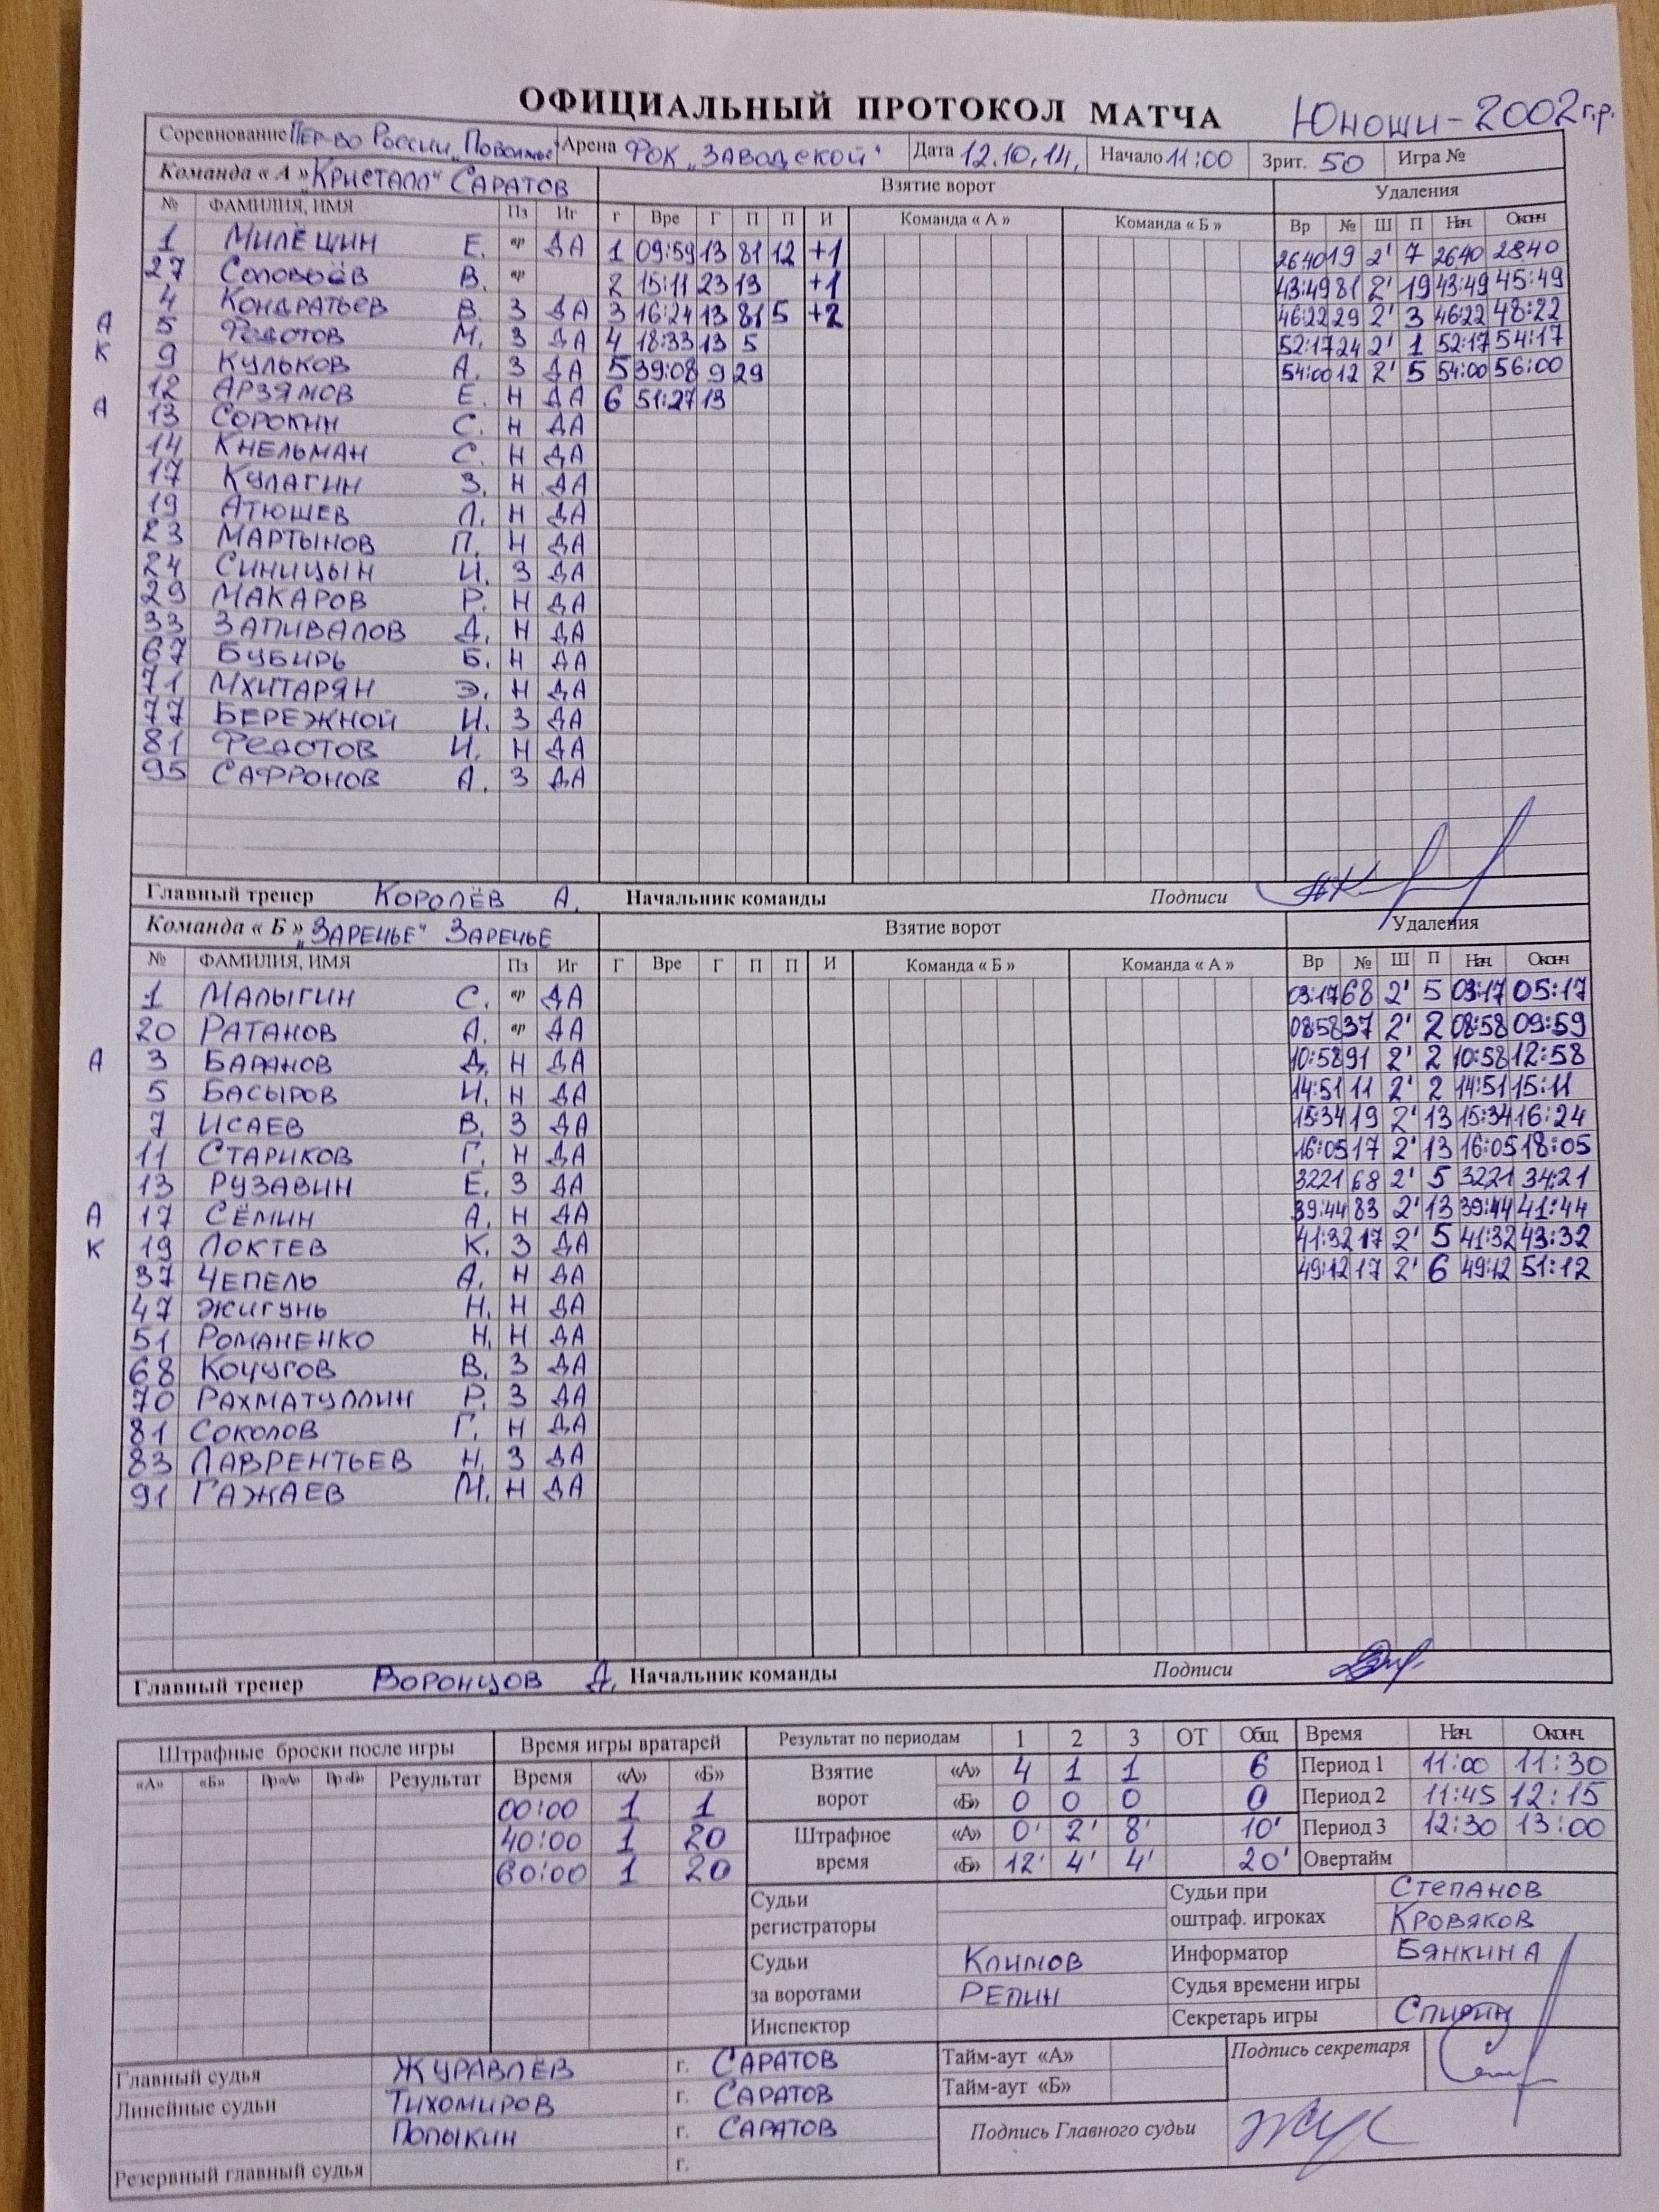 ОФИЦИАЛЬНЫЙ ПРОТОКОЛ МАТЧА Юноши-2002г.р.
Соревнование Пер-во России "Поволжье" Арена ФОК "Заводской" Дата 12.10.14. Начало 11:00 Зрит. 50 Игра №
Команда « А » "Кристалл" Саратов Взятие ворот Удаления
№ ФАМИЛИЯ, ИМЯ Пз Иг г Вре Г П П И Команда « А » Команда « Б » Вр № Ш П Нач. Оконч
1 Милёшин Е. вр ДА 1 09:59 13 81 12 +1 26:40 19 2' 7 26:40 28:40
27 Соловьёв В. вр 2 15:11 23 19 +1 43:49 81 2' 19 43:49 45:49
4 Кондратьев В. З ДА 3 16:24 13 81 5 +2 46:22 29 2' 3 46:22 48:22
А 5 Федотов М. З ДА 4 18:33 13 5 52:17 24 2' 1 52:17 54:17
К 9 Кульков А. З ДА 5 39:08 9 29 54:00 12 2' 5 54:00 56:00
12 Арзямов Е. Н ДА 6 51:27 13
А 13 Сорокин С. Н ДА
14 Кнельман С. Н ДА
17 Кулагин З. Н ДА
19 Атюшев Л. Н ДА
23 Мартынов П. Н ДА
24 Синицын И. З ДА
29 Макаров Р. Н ДА
33 Запивалов Д. Н ДА
67 Бубирь Б. Н ДА
71 Мхитарян Э. Н ДА
77 Бережной И. З ДА
81 Федотов И. Н ДА
95 Сафронов А. З ДА
Главный тренер Королёв А. Начальник команды Подписи
Команда « Б » "Заречье" Заречье Взятие ворот Удаления
№ ФАМИЛИЯ, ИМЯ Пз Иг Г Вре Г П П И Команда « Б » Команда « А » Вр № Ш П Нач. Оконч
1 Малыгин С. вр ДА 03:17 68 2' 5 03:17 05:17
20 Ратанов А. вр ДА 08:58 37 2' 2 08:58 09:59
А 3 Баранов Д. Н ДА 10:58 91 2' 2 10:58 12:58
5 Басыров И. Н ДА 14:51 11 2' 2 14:51 15:11
7 Исаев В. З ДА 15:34 19 2' 13 15:34 16:24
11 Стариков Г. Н ДА 16:05 17 2' 13 16:05 18:05
13 Рузавин Е. З ДА 32:21 68 2' 5 32:21 34:21
А 17 Сёмин А. Н ДА 39:44 83 2' 13 39:44 41:44
К 19 Локтев К. З ДА 41:32 17 2' 5 41:32 43:32
37 Чепель А. Н ДА 49:12 17 2' 6 49:12 51:12
47 Жигунь Н. Н ДА
51 Романенко Н. Н ДА
68 Кочугов В. З ДА
70 Рахматуллин Р. З ДА
81 Соколов Г. Н ДА
83 Лаврентьев Н. З ДА
91 Гажаев М. Н ДА
Главный тренер Воронцов А. Начальник команды Подписи
Штрафные броски после игры Время игры вратарей Результат по периодам 1 2 3 ОТ Общ. Время Нач. Оконч.
«А» «Б» Вр«А» Вр«Б» Результат Время «А» «Б» Взятие ворот «А» 4 1 1 6 Период 1 11:00 11:30
00:00 1 1 «Б» 0 0 0 0 Период 2 11:45 12:15
40:00 1 20 Штрафное время «А» 0' 2' 8' 10' Период 3 12:30 13:00
60:00 1 20 «Б» 12' 4' 4' 20' Овертайм
Судьи регистраторы Судьи при оштраф. игроках Степанов
Кровяков
Судьи за воротами Климов Информатор Бянкина
Репин Судья времени игры
Инспектор Секретарь игры Спирин
Главный судья Журавлёв г. Саратов Тайм-аут «А» Подпись секретаря
Линейные судьи Тихомиров г. Саратов Тайм-аут «Б»
Полыкин г. Саратов Подпись Главного судьи
Резервный главный судья г.